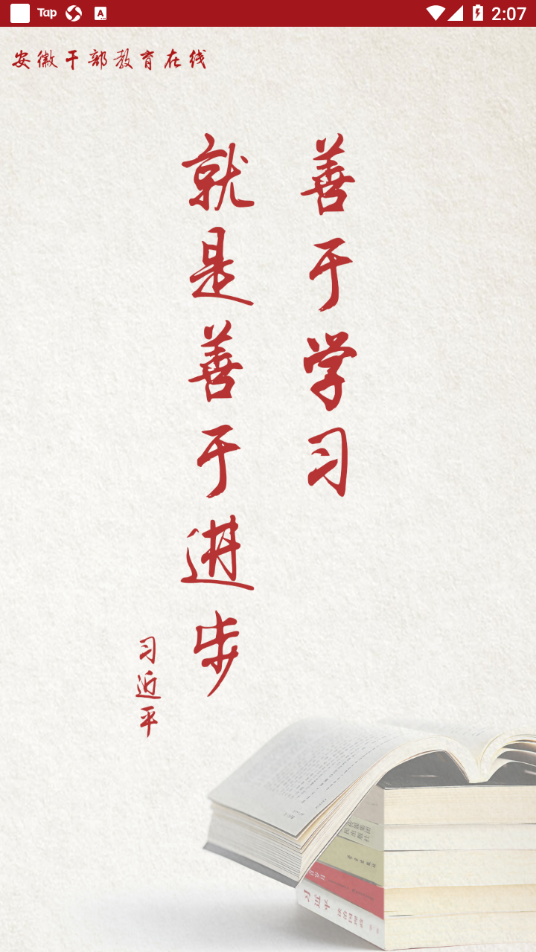 Tap
A
2:07
安徽干部教育在线
善于学习
就是善于进步
习近平
习近平